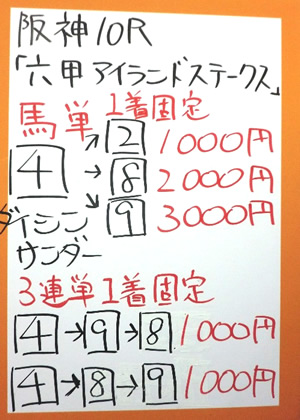 阪神10R
「六甲アイランドステークス」
馬単 1着固定
4 → 2 1000円
→ 8 2000円
→ 9 3000円
ダイシン
サンダー
3連単1着固定
4→9→8 1000円
4→8→9 1000円